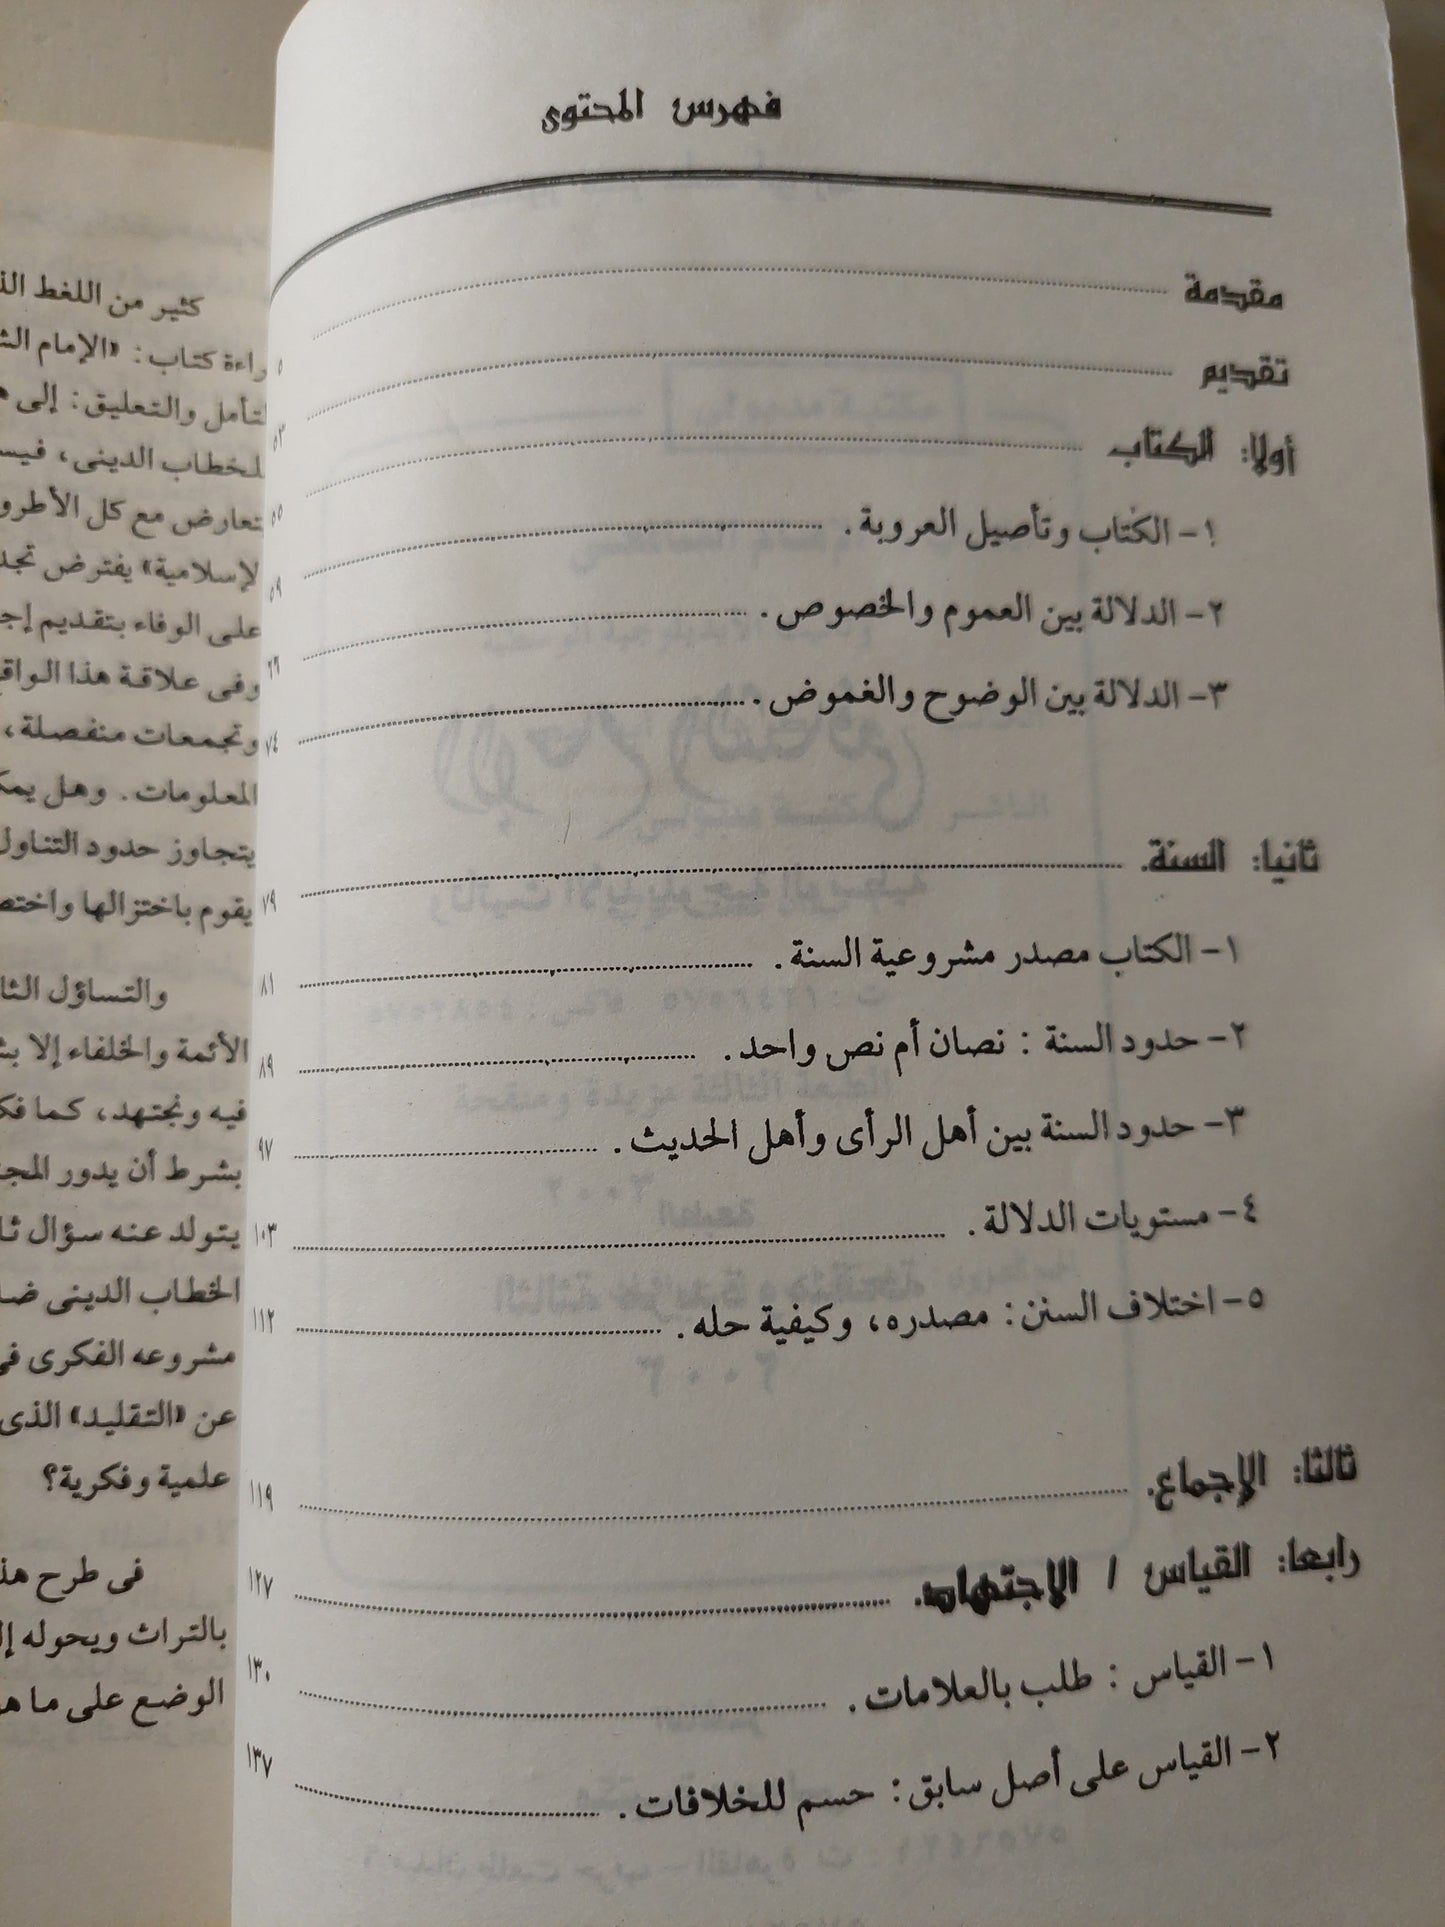 فهرس المحتوى
مقدمة ٥
تقديم ٥٣
أولا: الكتاب ٥٥
١- الكتاب وتأصيل العروبة. ٥٩
٢- الدلالة بين العموم والخصوص. ٦٦
٣- الدلالة بين الوضوح والغموض. ٧٤
ثانيا: السنة. ٧٩
١- الكتاب مصدر مشروعية السنة. ٨١
٢- حدود السنة : نصان أم نص واحد. ٨٩
٣- حدود السنة بين أهل الرأى وأهل الحديث. ٩٧
٤- مستويات الدلالة. ١٠٣
٥- اختلاف السنن: مصدره، وكيفية حله. ١١٢
ثالثا: الإجماع. ١١٩
رابعا: القياس / الإجتهاد. ١٢٧
١- القياس : طلب بالعلامات. ١٣٠
٢- القياس على أصل سابق: حسم للخلافات. ١٣٧
كثير من اللغط
كتاب: «الإمام
والتعليق: إلى
الدينى، فيس
مع كل الأطرو
يفترض تجد
على الوفاء بتقديم إج
وفى علاقة هذا الواق
وتجمعات منفصلة،
المعلومات. وهل يمك
يتجاوز حدود التناول
يقوم باختزالها واختص
والتساؤل الثا
الأئمة والخلفاء إلا بش
فيه ونجتهد، كما فك
بشرط أن يدور المج
يتولد عنه سؤال ثا
الخطاب الدينى ضـ
مشروعه الفكرى فى
عن «التقليد» الذى
علمية وفكرية؟
فى طرح هذ
بالتراث ويحوله إل
الوضع على ما هو